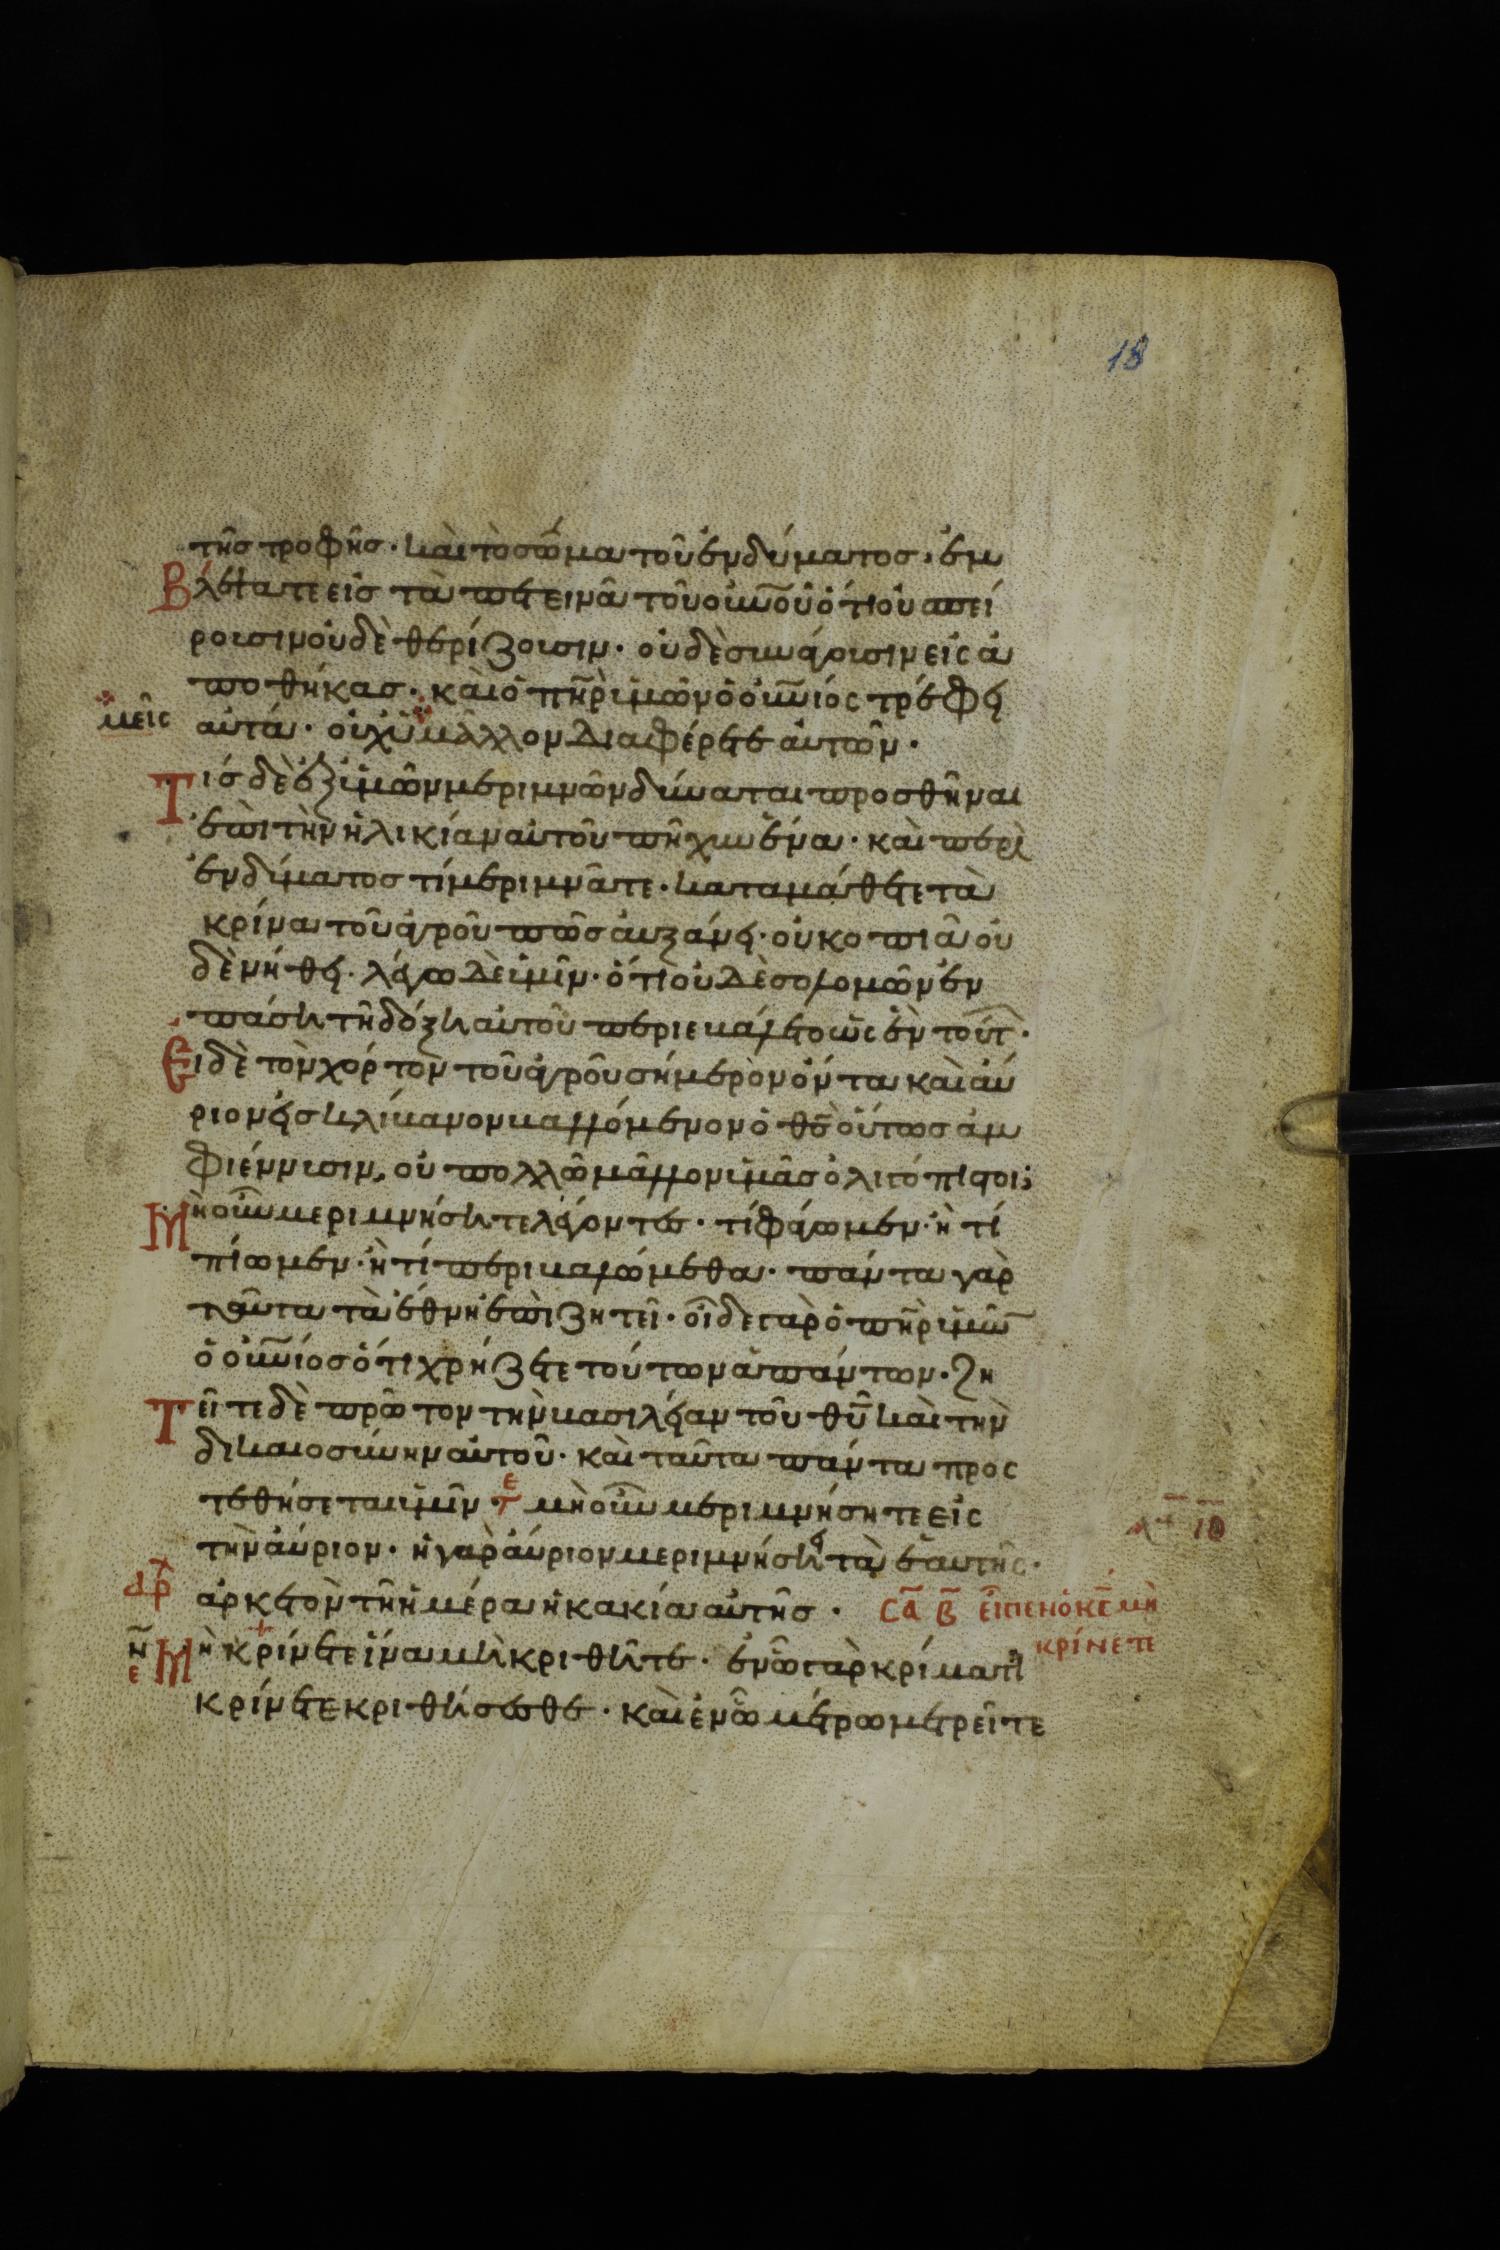 18
τῆς τροφῆς · καὶ τὸ σῶμα τοῦ ἐνδύματος · ἐμ
βλέψατε εἰς τὰ πετεινὰ τοῦ οὐνοῦ ὅτι οὐ σπεί
ρουσιν οὐδὲ θερίζουσιν · οὐδὲ συνάγουσιν εἰς ἀ
ποθήκας · καὶ ὁ πηρ ὑμῶν ὁ οὐνιος τρέφει
μεῖς
αὐτά · οὐχ ὑ μᾶλλον διαφέρετε αὐτῶν ·
Τίς δὲ ἐξ ὑμῶν μεριμνῶν δύναται προσθῆναι
ἐπὶ τὴν ἡλικίαν αὐτοῦ πῆχυν ἕνα · καὶ περὶ
ἐνδύματος τί μεριμνᾶτε · καταμάθετε τὰ
κρίνα τοῦ ἀγροῦ πῶς αὐξάνει · οὐ κοπιᾶ οὐ
δὲ νήθει · λέγω δὲ ὑμῖν · ὅτι οὐδὲ σολομῶν ἐν
πάση τῆ δόξη αὐτοῦ περιεβάλετο ὡς ἓν τούτ ·
Εἰ δὲ τὸν χόρτον τοῦ ἀγροῦ σήμερον ὄντα καὶ αὔ
ριον εἰς κλίβανον βαλλόμενον ὁ θς οὕτως ἀμ
φιέννυσιν, οὐ πολλῶ μᾶλλον ὑμᾶς ὀλιγόπιστοι;
Μὴ οὖν μεριμνήσητε λέγοντες · τί φάγωμεν · ἢ τί
πίωμεν · ἢ τί περιβαλώμεθα · πάντα γὰρ
ταῦτα τὰ ἔθνη ἐπιζητεῖ · οἶδε γὰρ ὁ πηρ ὑμῶν
ὁ οὐνιος ὅτι χρήζετε τούτων ἁπάντων · ζη
Τεῖτε δὲ πρῶτον τὴν βασιλείαν τοῦ θυ καὶ τὴν
δικαιοσύνην αὐτοῦ · καὶ ταῦτα πάντα προς
τεθήσεται ὑμῖν · τε μὴ οὖν μεριμνήσητε εἰς
τὴν αὔριον · ἡ γὰρ αὔριον μεριμνήσει τὰ ἑαυτῆς ·
αρχ
ἀρκετὸν τῆ ἡμέρα ἡ κακία αὐτῆς · σα β εἶπεν ὁ κς μὴ
κρίνετε
Μὴ κρίνετε ἵνα μὴ κριθῆτε · ἐν ὧ γὰρ κρίματι
κρίνετε κριθήσεσθε · καὶ ἐν ὧ μέτρω μετρεῖτε